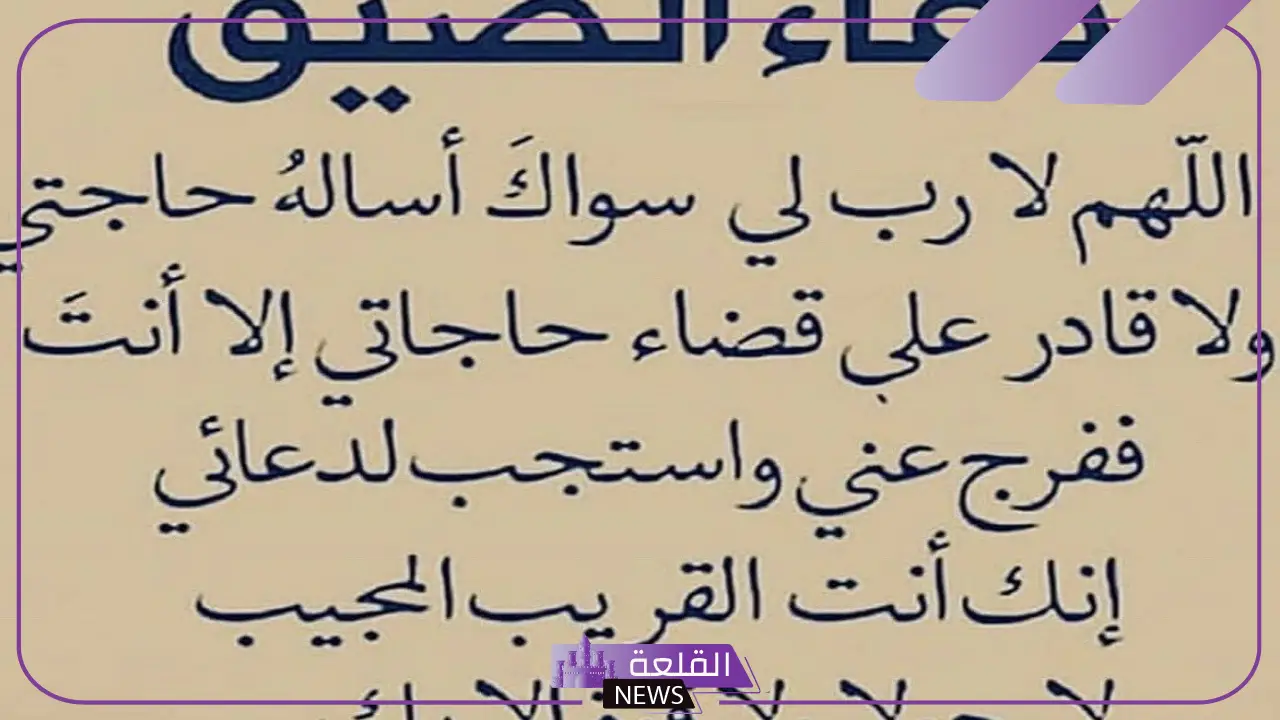 دعاء الضيق
اللّهم لا رب لي سواكَ أسالهُ حاجتي
ولا قادر علي قضاء حاجاتي إلا أنتَ
ففرج عني واستجب لدعائي
إنك أنت القريب المجيب
لا حول ولا قوة إلا بك
القلعة
NEWS